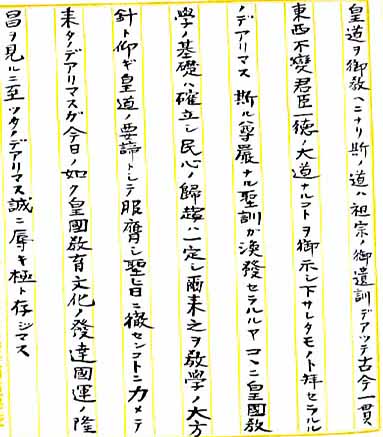 皇道ヲ御教ヘニナリ斯ノ道ハ祖宗ノ御遺訓デアツテ古今一貫
東西不變君臣一徳ノ大道ナルコトヲ御示シ下サレタモノト拜セラルル
ノデアリマス 斯ル尊嚴ナル聖訓ガ渙發セラルルヤコヽニ皇國教
學ノ基礎ハ確立シ民心ノ歸趨ハ一定シ爾来之ヲ教學ノ大方
針ト仰ギ皇道ノ要諦トシテ服膺シ聖旨ニ徹センコトニカメテ
来タノデアリマスガ今日ノ如ク皇國教育文化ノ發達國運ノ隆
昌ヲ見ルニ至ツタノデアリマス誠ニ辱キ極ト存ジマス